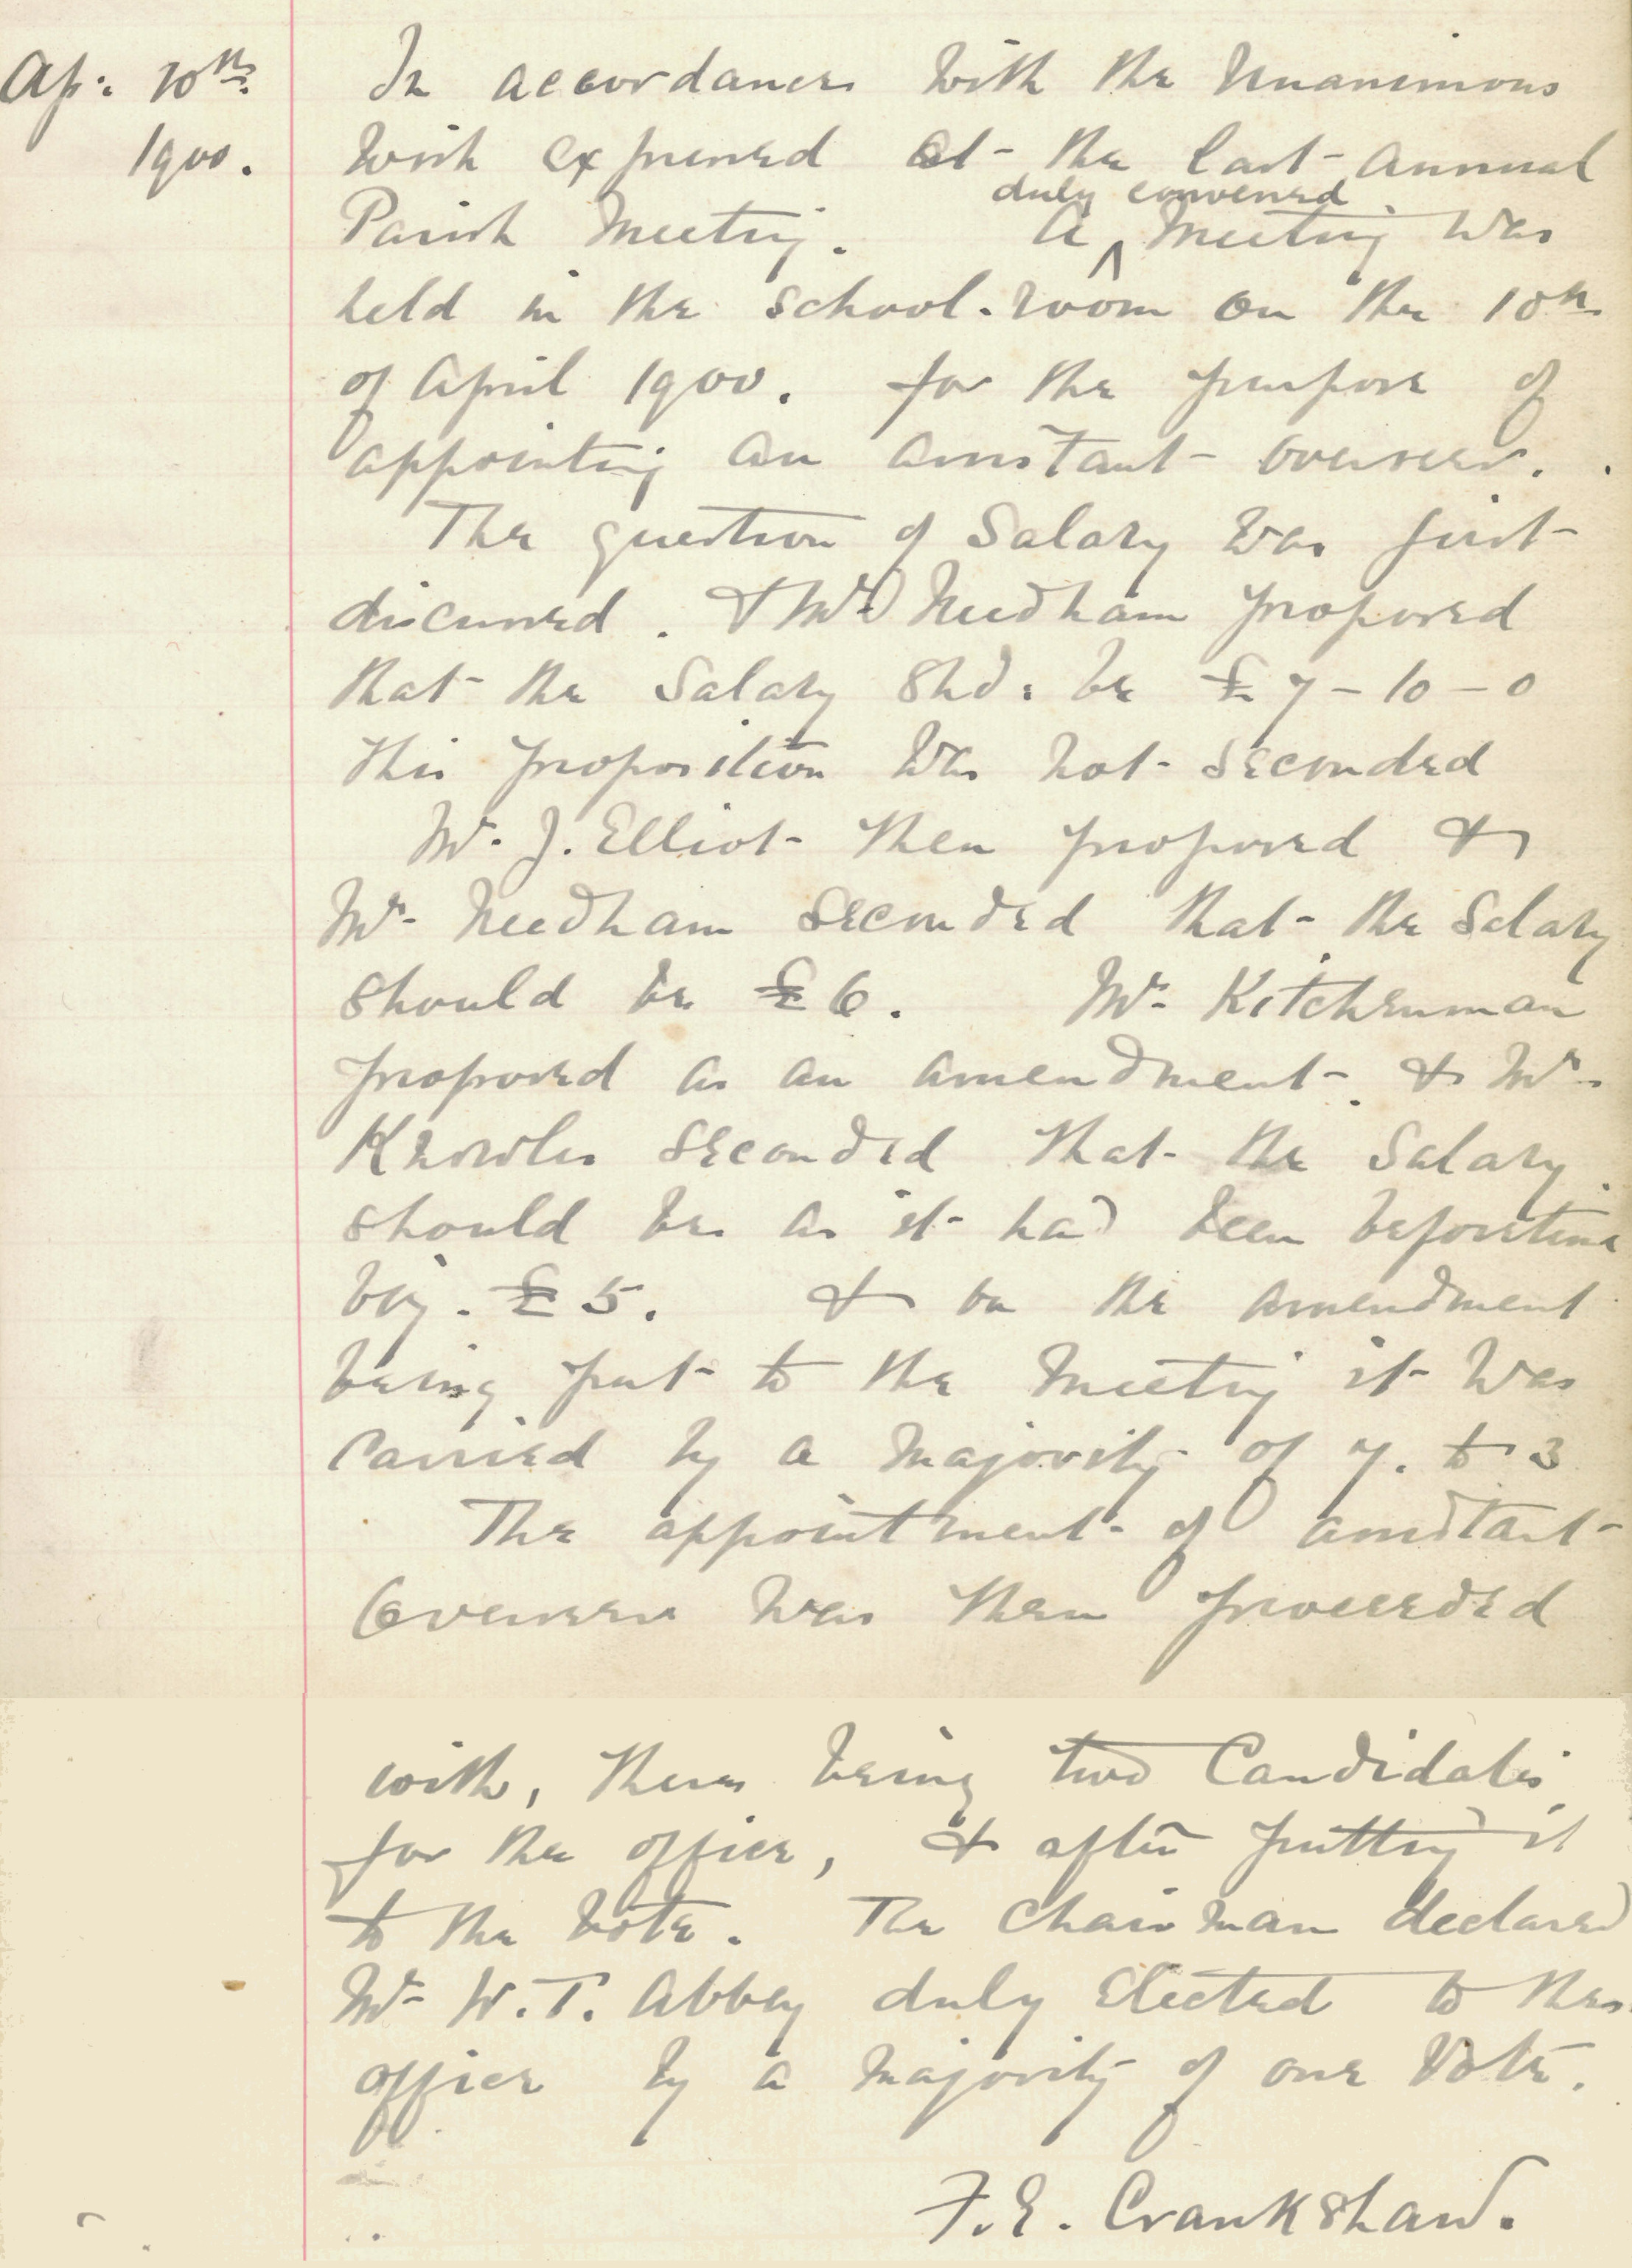 Ap: 10th. In accordance with the Unanimous
1900. wish expressed at the last Annual
duly convened
Parish Meeting. A ^ Meeting was
held in the School-room on the 10th
of April 1900. for the purpose of
appointing an assistant overseer.
The question of Salary was first
discussed. & Mr Needham proposed
that the Salary Shd: be £7-10-0
this proposition was not seconded
Mr. J. Elliot then proposed &
Mr. Needham seconded that the Salary
should be £6. Mr. Kitchenman
proposed as an amendment. & Mr.
Knowles seconded that the Salary
should be as it had been beforetime
viz. £5. & on the amendment
being put to the Meeting it was
carried by a Majority of 7. to 3
The appointment of assistant
Overseer was then proceeded
with, there being two Candidates
for the office, & after putting it
to the vote. The Chairman declared
Mr W.T. Abbey duly Elected to the
office by a Majority of one Vote.
F.E. Crankshaw.